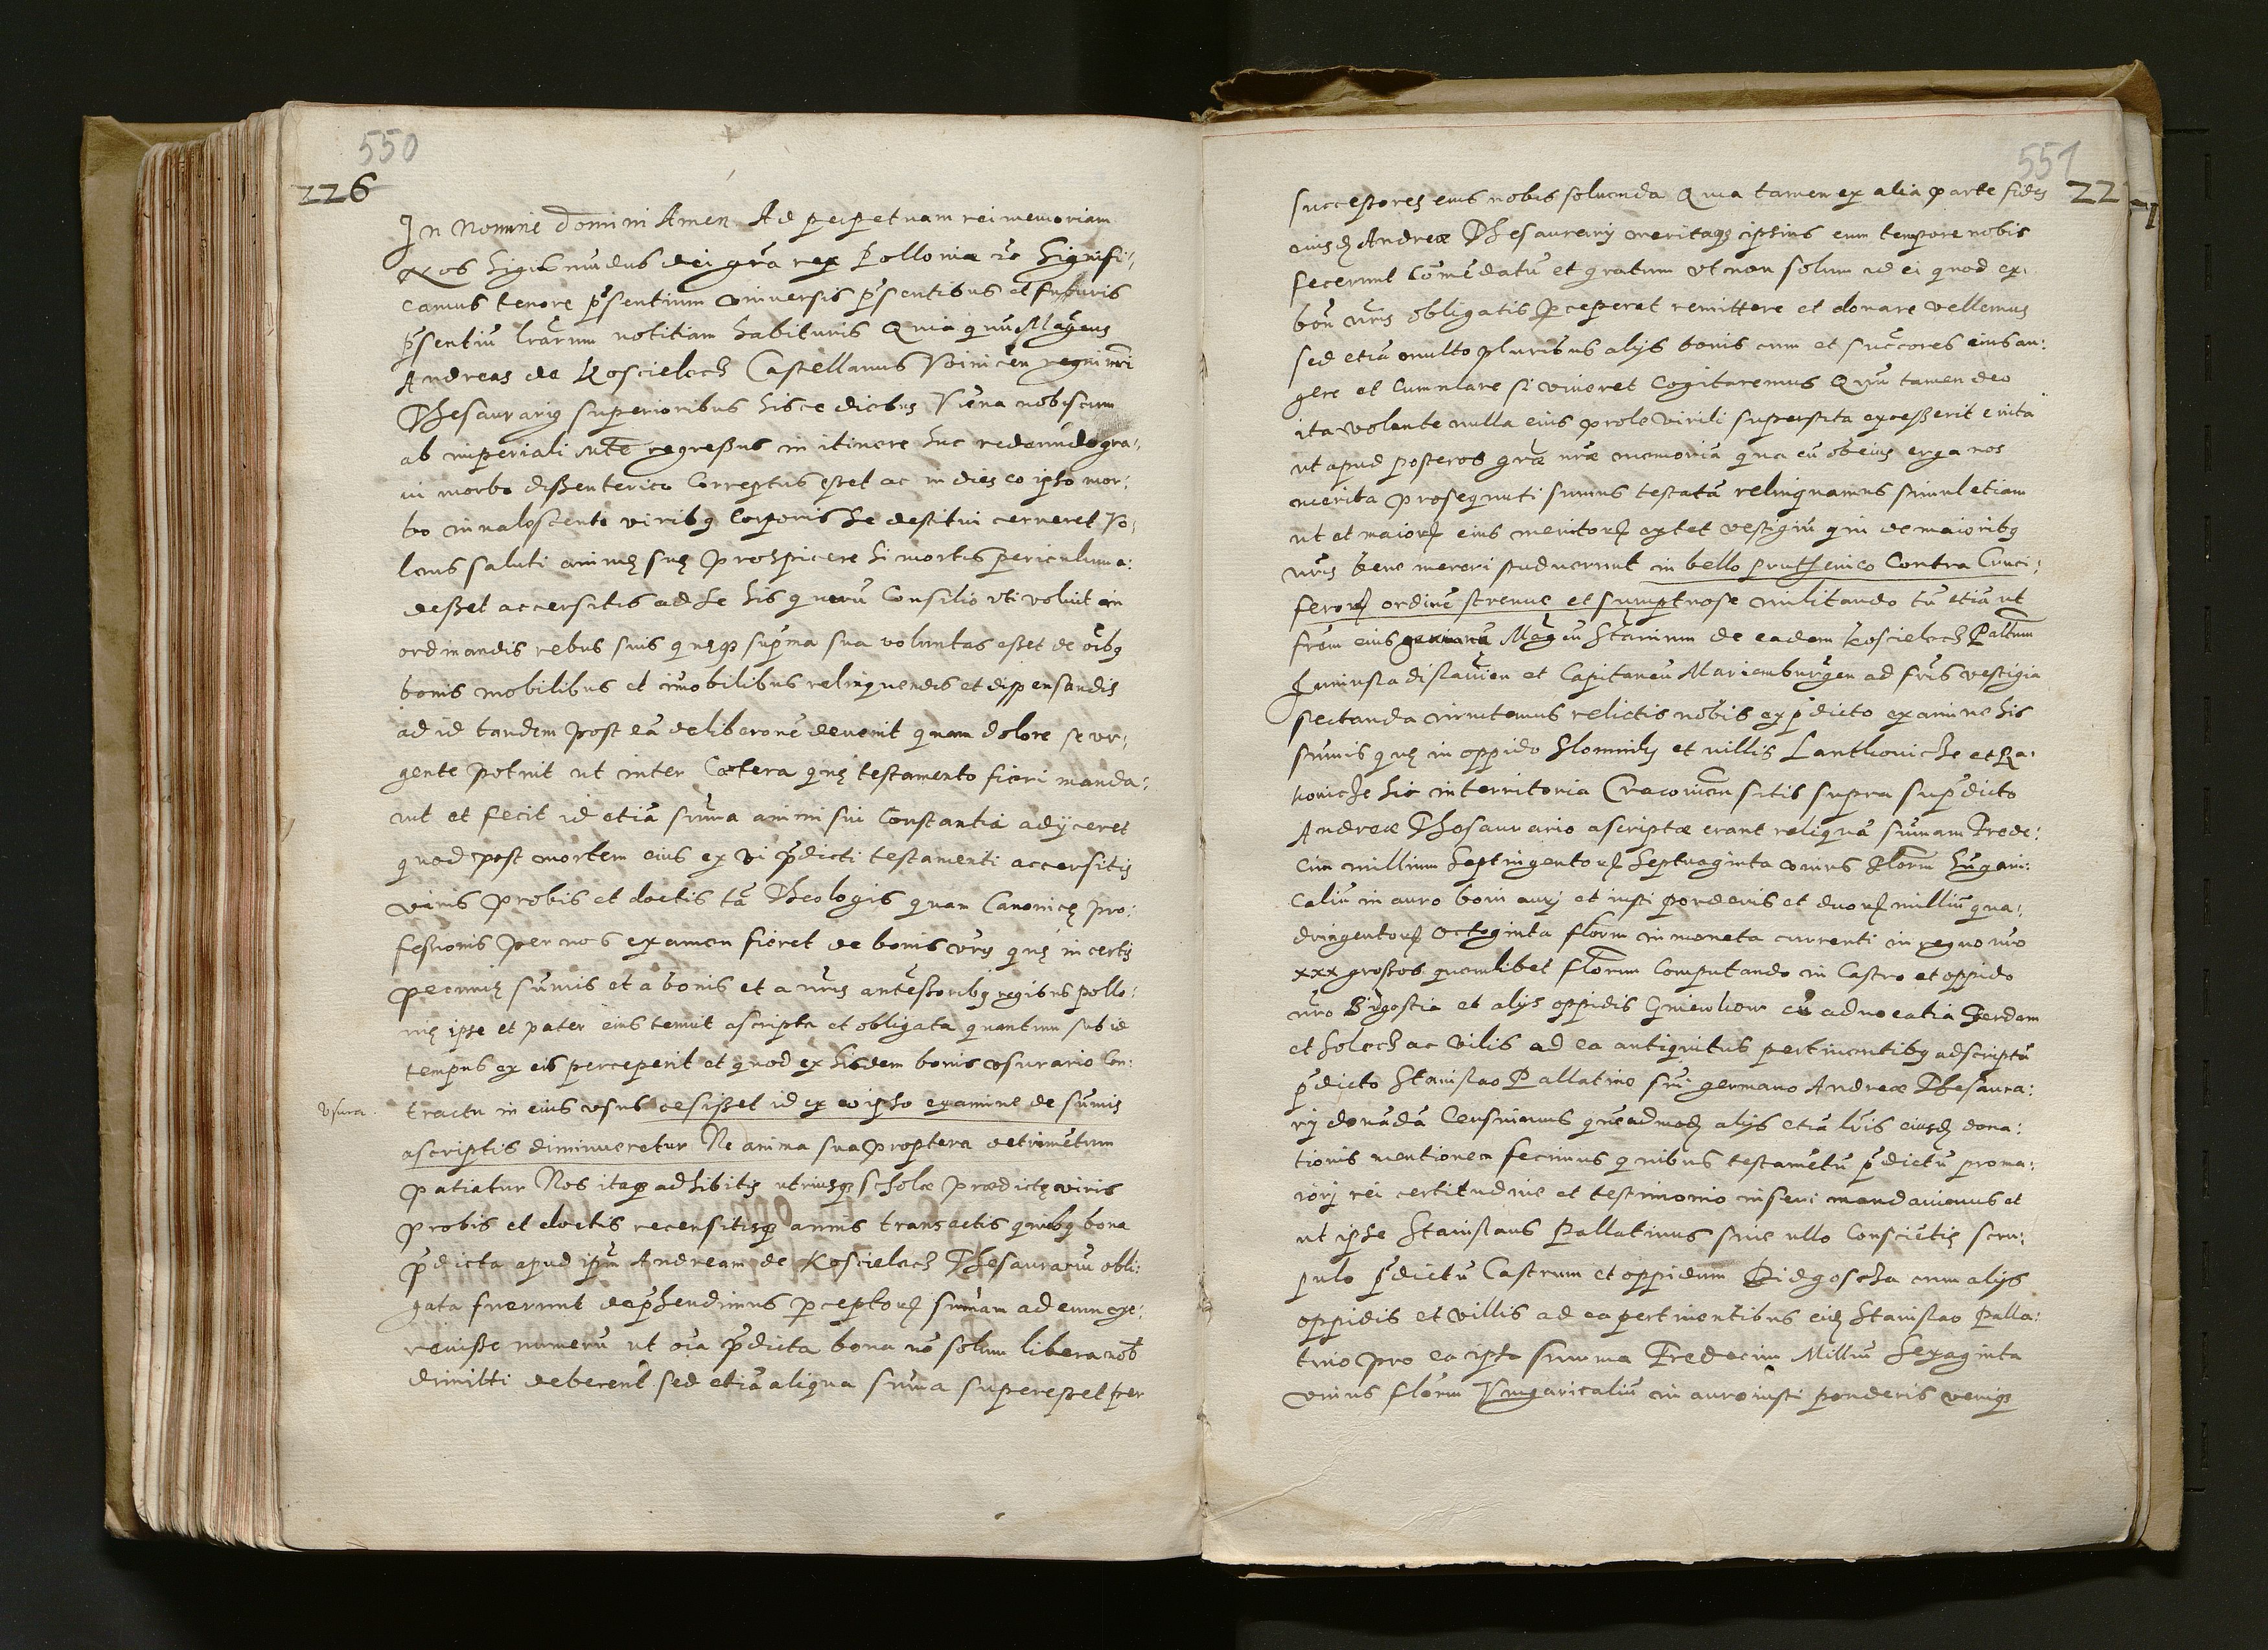 550
226
In Nomine domini Amen Ad perpetuam rei memoriam
Nos Sigismūdus dei grā rex Pollonie rc Signifi:
camus tenore p̄sentium vniuersis p̄sentibus et futuris
p̄sentiū lrārum notitiam habituris Quia qnū Magcus
Andreas de Koscielecz Castellanus Voinicen regni nrī
Thesaurarius superioribus hisce diebus Viena nobiscum
ab imperiali regressus in itinere huc redeundo gra:
ui morbo dissenterico Correptus esset ac in dies eo ipso mor:
bo inualescente viribq Corporis se destitui cerneret Vo:
lens saluti animę suę prospicere si mortis periculum a:
desset accersitis ad se his quorū Consilio vti voluit in
ordinandis rebus suis quęqꝫ sup̄ma sua voluntas esset de oībq
bonis mobilibus et imobilibus relinquendis et dispensandis
ad id tandem post eā deliberonē deuenit quam dolore se vr:
gente potuit ut inter Cœtera quę testamento fieri manda:
uit et fecit id etiā suma animi sui Constantia adijceret
quod post mortem eius ex vi p̄dicti testamenti accersitis
viris probis et doctis tā Theologis quam Canonicę pro:
fessionis per nos examen fieret de bonis nrīs quę in certis
pecunię sumis et a bonis et a nrīs antecessoribq regibus pollo:
nię ipse et pater eius tenuit ascripta et obligata quantum sub id
tempus ex eis perceperit et quod ex hisdem bonis vsurario Con:
vsura.
tractu in eius vsus cesisset id ex eo ipso examine de sumis
ascriptis diminueretur Ne anima sua propterea detrimētum
patiatur Nos itaqꝫ adhibitis utriusqꝫ scholæ prædictę viris
probis et doctis recensitisqꝫ annis transactis quibq bona
p̄dicta apud ipūm Andream de Koscielecz Thesaurariū obli:
gata fuerunt dep̄hendimus pceptorꝝ sumam ad eum exe:
reuisse numerū ut oīa p̄dicta bona nō solum libera nob
dimitti deberent sed etiā aliqua suma superesset per
551
227
successores eius nobis soluenda Quia tamen ex alia parte fides
eiusdē Andreæ Thesaurarij meritaqꝫ ipsius eum tempore nobis
fecerunt Comēdatū et gratum vt non solum id ei quod ex
bon nrīs obligatis pceperat remittere et donare vellemus
sed etiā multo pluribus alijs bonis eum et succores eius au:
gere et Cumulare si viueret Cogitaremus Quū tamen deo
ita volente nulla eius prole virili supersita excesserit e vita
ut apud posteros grā nrā memoriā qua eū ob eius erga nos
merita prosequuti sumus testatā relinquamus simul etiam
ut et maiorꝝ eius meritorꝝ extet vestigiū qui de maioribq
nrīs bene mereri studuerunt in bello pruthenico Contra Cruci:
ferorꝝ ordinē strenue et sumptuose militando tū etiā ut
frēm eius Magcū Stanium de eadem Koscielecz Paltum
Juniuladislauien et Capitaneū Mariemburgen ad frīs vestigia
sectanda inuitemus relictis nobis ex p̄dicto examine his
sumis quę in oppido Slomniky et villis Lanthowicze et Ra:
kowicze hic in territorio Cracouien sitis supra sup̄dicto
Andreæ Thesaurario ascriptæ erant reliquā sumam Trede:
cim millium Septingentorꝝ septuaginta vnius Florm Hugari:
caliū in auro boni aurj et iusti ponderis et duorꝝ milliū qua:
dringentorꝝ octoginta florm in moneta currenti in regno nrō
xxx grossos quemlibet florum Computando in Castro et oppido
nrō Bidgostia et alijs oppidis Gniewkow cū aduocatia Serdam
et Solecz ac villis ad ea antiquitus pertinentibq adscriptā
p̄dicto Stanislao Pallatino frī germano Andreæ Thesaura:
rij donādā Censuimus quēadmodū alijs etiā lrīs eiusdē dona:
tionis mentionem fecimus quibus testamētū p̄dictū proma:
iorj rei certitudine et testimonio inseri mandauimus et
ut ipse Stanislaus Pallatinus sine ullo Consciētię scru:
pulo p̄dictū Castrum et oppidum Bidgoscza cum alijs
oppidis et villis ad ea pertinentibus eidē Stanislao Palla:
tino pro ea ipsa summa Tredecim Milliū Sexaginta
vnius florm Vngaricaliū in auro iusti ponderis veriqꝫ